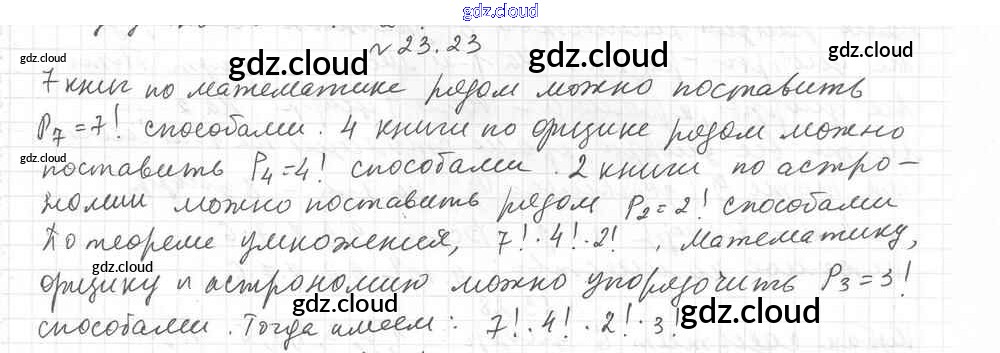 gdz.cloud
№ 23.23
gdz.cloud gdz.cloud gdz.cloud
7 книг по математике рядом можно поставить
gdz.cloud
P₇=7! способами. 4 книги по физике рядом можно
gdz.cloud
поставить P₄=4! способами. 2 книги по астро-
номии можно поставить рядом P₂=2! способами
gdz.cloud
По теореме умножения, 7!·4!·2!. Математику,
gdz.cloud
физику и астрономию можно упорядочить P₃=3!
gdz.cloud gdz.cloud gdz.cloud
способами. Тогда имеем: 7!·4!·2!·3!